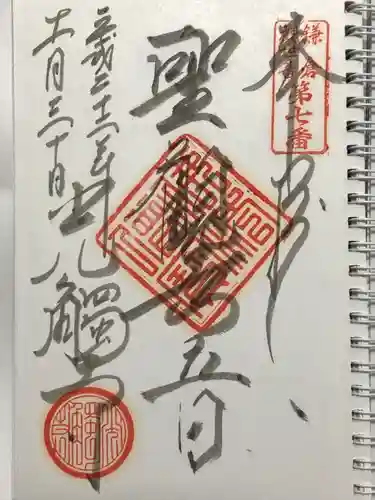 奉拝
鎌倉
第七番
聖観世音
平成二十二年
十一月三十日
光觸寺